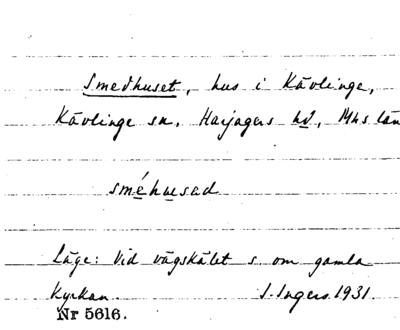 Smedhuset, hus i Kävlinge,
Kävlinge sn, Harjagers hd, Mhs län
sméhusad
Läge: Vid vägskälet s. om gamla
Kyrkan. I. Ingers 1931.
Nr 5616.